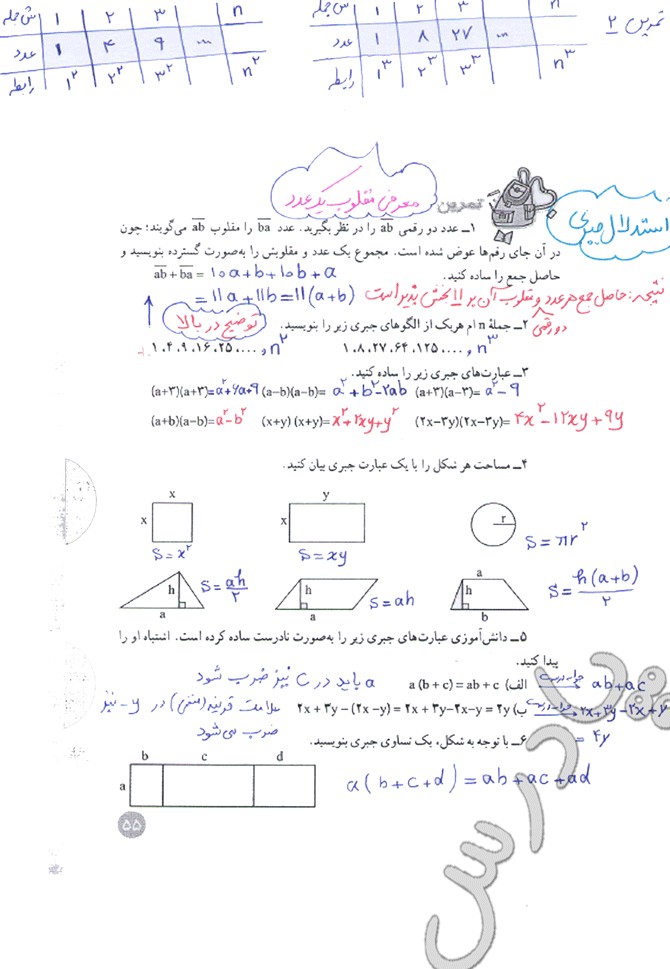 تمرین ۲
ش جمله ۱ ۲ ۳ n
عدد ۱ ۸ ۲۷ ...
رابطه ۱³ ۲³ ۳³ n³
ش جمله ۱ ۲ ۳ n
عدد ۱ ۴ ۹ ...
رابطه ۱² ۲² ۳² n²
استدلال جبری
تمرین
معرفی مقلوب یک عدد
۱ــ عدد دو رقمی ab را در نظر بگیرید. عدد ba را مقلوب ab می‌گویند؛ چون
در آن جای رقم‌ها عوض شده است. مجموع یک عدد و مقلوبش را به‌صورت گسترده بنویسید و
حاصل جمع را ساده کنید. ab + ba = ۱۰a+b+۱۰b+a
= ۱۱a+۱۱b=۱۱(a+b)
نتیجه: حاصل جمع هر عدد دو رقمی و مقلوب آن بر ۱۱ بخش پذیر است
۲ــ جملهٔ n ام هریک از الگوهای جبری زیر را بنویسید. توضیح در بالا
۱،۸،۲۷،۶۴،۱۲۵،...، n³
۱،۴،۹،۱۶،۲۵،...، n²
۳ــ عبارت‌های جبری زیر را ساده کنید.
(a+۳)(a+۳)=a²+۶a+۹ (a−b)(a−b)= a²+b²-۲ab (a+۳)(a−۳)= a²-۹
(a+b)(a−b)=a²-b² (x+y)(x+y)=x²+۲xy+y² (۲x−۳y)(۲x−۳y)= ۴x²-۱۲xy+۹y
۴ــ مساحت هر شکل را با یک عبارت جبری بیان کنید.
x x S=x²
y x S=xy
r S=πr²
h a S=ah/۲
h a S=ah
a h b S=h(a+b)/۲
۵ــ دانش‌آموزی عبارت‌های جبری زیر را به‌صورت نادرست ساده کرده است. اشتباه او را
پیدا کنید.
الف) a (b + c) = ab + c جواب درست ab+ac
a باید در c نیز ضرب شود
ب) ۲x + ۳y − (۲x −y) = ۲x + ۳y−۲x−y = ۲y جواب درست ۲x+۳y-۲x+y
= ۴y
علامت قرینه (منفی) در y- نیز
ضرب می‌شود
۶ــ با توجه به شکل، یک تساوی جبری بنویسید.
b c d
a
a(b+c+d)=ab+ac+ad
۵۵
درس